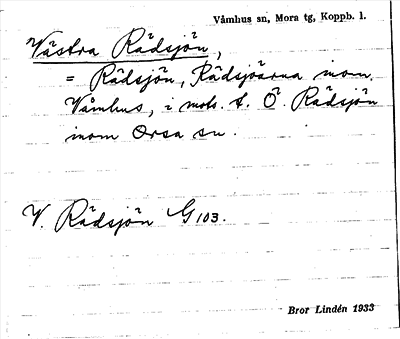 Våmhus sn, Mora tg, Koppb. l.
Västra Rädsjön,
= Rädsjön, Rädsjöarna inom
Våmhus, i mots. t. Ö. Rädsjön
inom Orsa sn.
V. Rädsjön G 103.
Bror Lindén 1933